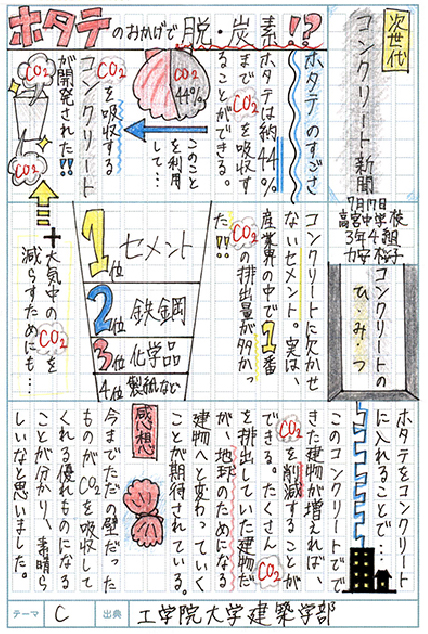 次世代
コンクリート新聞
7月17日
高宮中学校
3年4組
ホタテのおかげで脱・炭素!?
ホタテのすごさ
ホタテは約44%
までCO2を吸収す
ることができる。
CO2
44%
このこと
を利用
して…
CO2を吸収する
コンクリート
が開発された!!
CO2
CO2
コンクリートの
ひ・み・つ
コンクリートに欠かせ
ないセメント。実は、
産業界の中で1番
CO2の排出量が多かっ
た!!
1位 セメント
2位 鉄鋼
3位 化学品
4位 製紙など
+大気中のCO2を
減らすためにも…
ホタテをコンクリート
に入れることで…
このコンクリートでで
きた建物が増えれば、
CO2を削減することが
できる。たくさんCO2
を排出していた建物だ
が、地球のためになる
建物へと変わっていく
ことが期待されている。
感想
今までただの壁だった
ものがCO2を吸収して
くれる優れものになる
ことが分かり、素晴ら
しいなと思いました。
テーマ C 出典 工学院大学建築学部